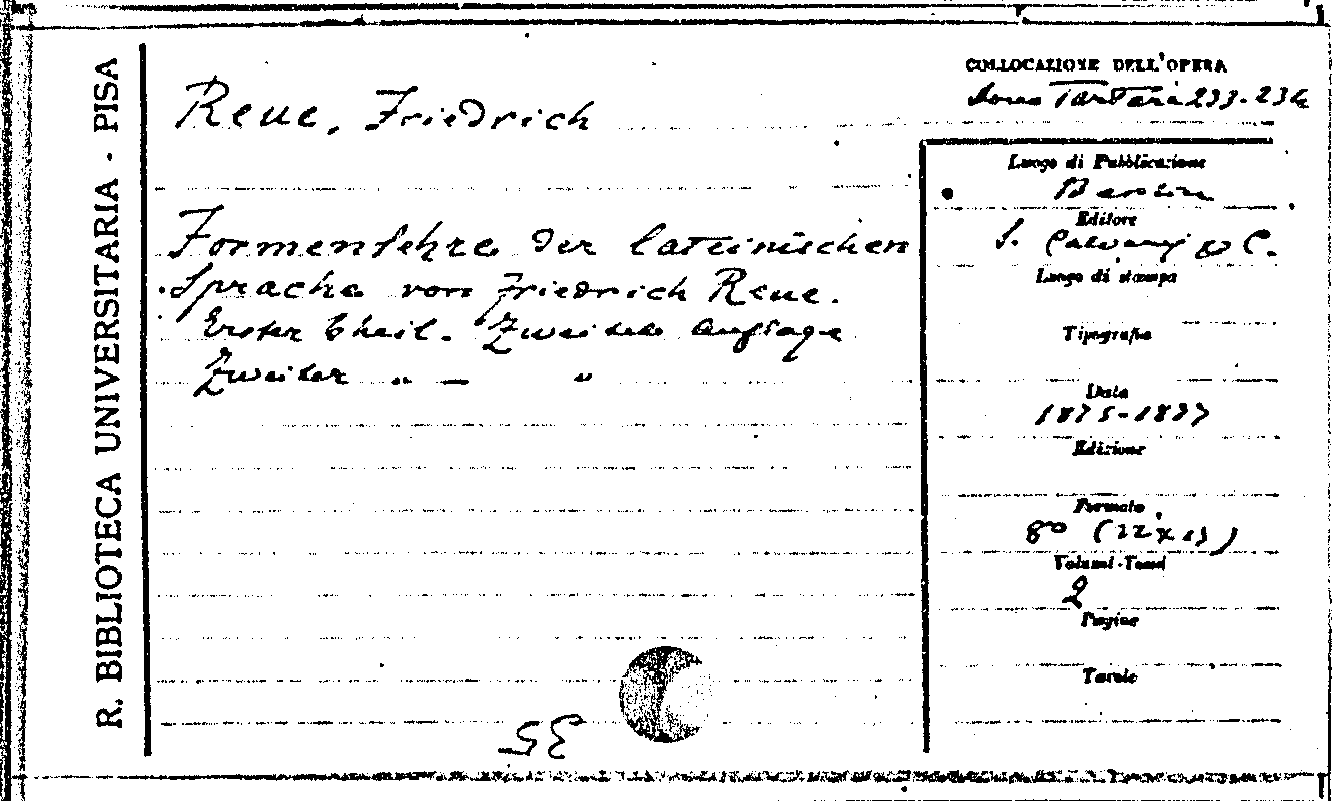 R. BIBLIOTECA UNIVERSITARIA - PISA
COLLOCAZIONE DELL'OPERA
Dono Tartara 233-234
Reue, Friedrich
Formenlehre der lateinischen
Sprache von Friedrich Reue.
Erster Theil. Zweite Auflage
Zweiter " — "
Luogo di Pubblicazione
Berlin
Editore
S. Calvary & C.
Luogo di stampa
Tipografia
Data
1875-1877
Edizione
Formato
8º (22x15)
Volumi-Tomi
2
Pagine
Tavole
35